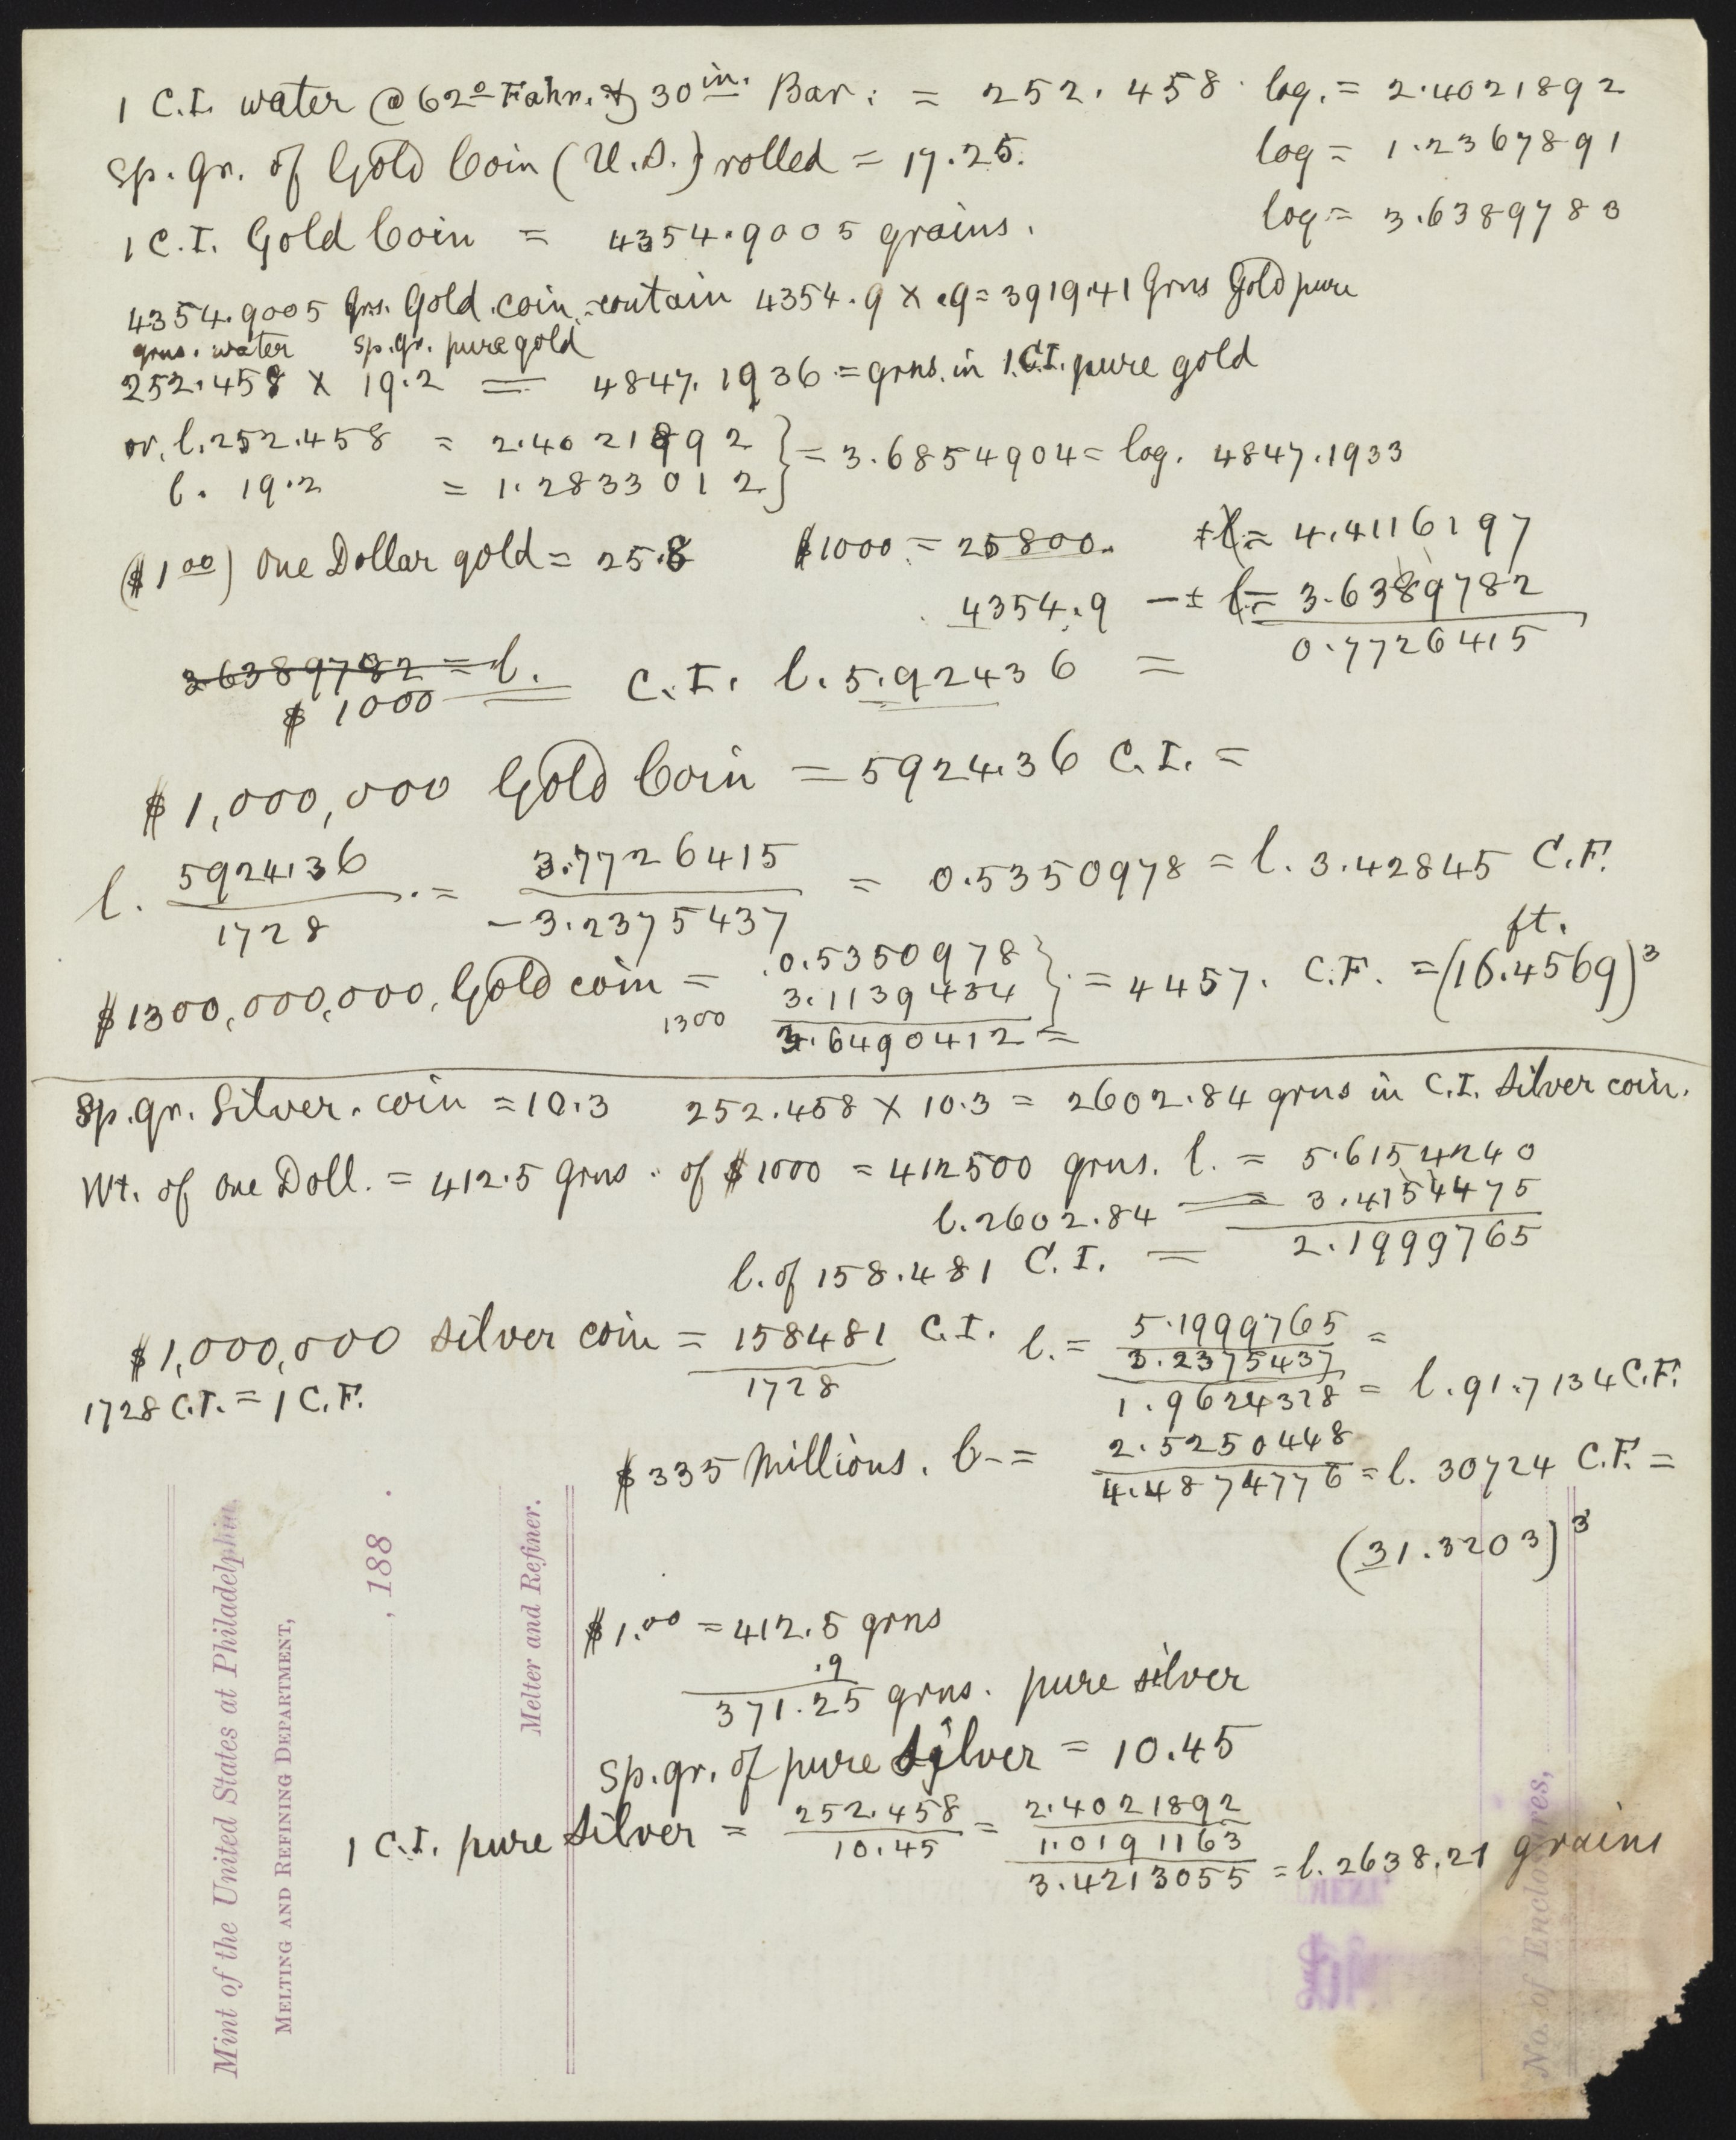 1 C.I. water @ 62° Fahr. & 30 in. Bar: = 252.458 log. = 2.4021892
Sp. gr. of Gold Coin (U.S.) rolled = 17.25. log = 1.2367891
1 C.I. Gold Coin = 4354.9005 grains. log = 3.6389783
4354.9005 grs. Gold coin contain 4354.9 × .9 = 3919.41 Grns Gold pure
grns. water sp. gr. pure gold
252.458 × 19.2 = 4847.1936 = grns. in 1 C.I. pure gold
or, l. 252.458 = 2.4021892 } = 3.6854904 = log. 4847.1933
l. 19.2 = 1.2833012
($1 00) One Dollar gold = 25.8 $1000 = 25800. + l = 4.4116197
4354.9 – ± l = 3.6389782
0.7726415
3.6389782 = l.
$1000 = C.I. l. 5.92436 =
$1,000,000 Gold Coin = 5924.36 C.I. =
l. 5924.36 / 1728 = 3.7726415 / – 3.2375437 = 0.5350978 = l. 3.42845 C.F.
$1300,000,000, Gold coin = 0.5350978 } = 4457. C.F. = (16.4569)³ ft.
1300 3.1139434
3.6490412 =
Sp. gr. Silver. coin = 10.3 252.458 × 10.3 = 2602.84 grns in C.I. Silver coin.
Wt. of One Doll. = 412.5 grns. of $1000 = 412500 grns. l. = 5.6154240
l. 2602.84 = 3.4154475
l. of 158.481 C.I. = 2.1999765
$1,000,000 silver coin = 158481 / 1728 C.I. l. = 5.1999765 =
3.2375437
1728 C.I. = 1 C.F. 1.9624328 = l. 91.7134 C.F.
$335 Millions. l. = 2.5250448
4.4874776 = l. 30724 C.F. =
(31.3203)³
$1.00 = 412.5 grns
.9
371.25 grns. pure silver
Sp. gr. of pure Silver = 10.45
1 C.I. pure Silver = 252.458 / 10.45 = 2.4021892
1.0191163
3.4213055 = l. 2638.21 grains
Mint of the United States at Philadelphia,
MELTING AND REFINING DEPARTMENT,
, 188 .
Melter and Refiner.
No. of Enclosures,